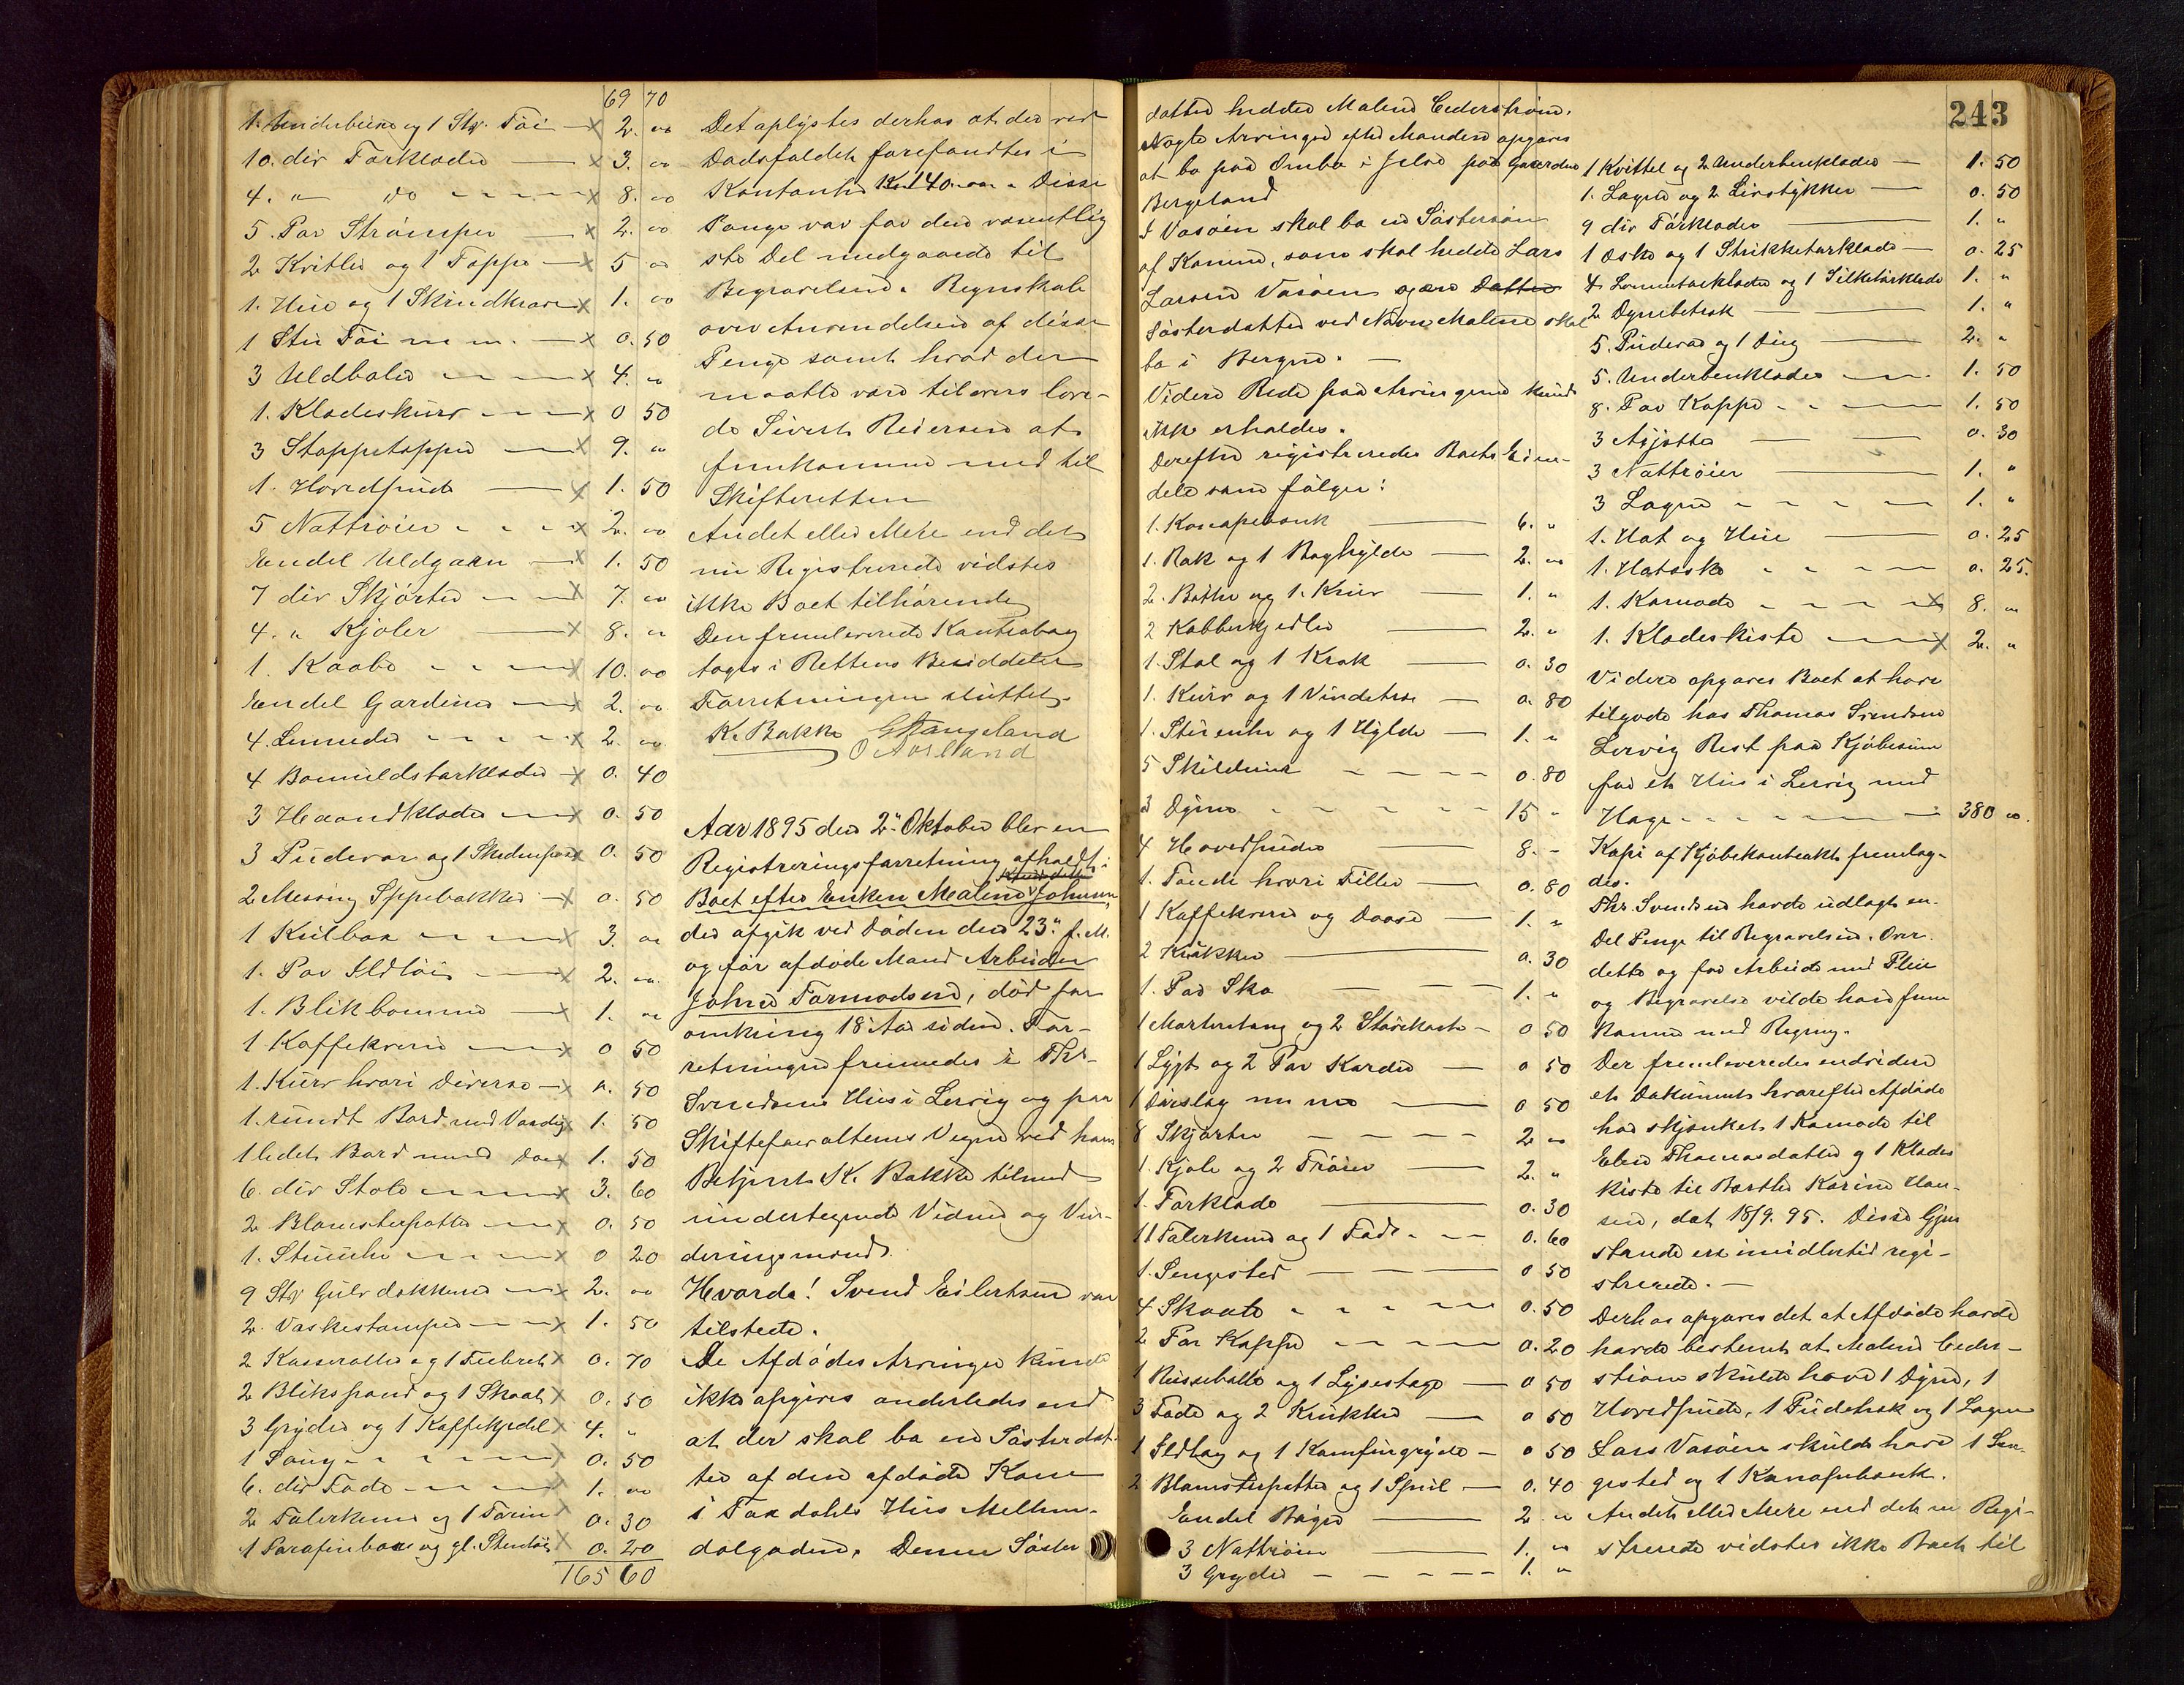 69 70
1. Underbeins og 1 Stk. Töi - x 2. oo
10. div Törklæder — x 3. oo
4. " do - - - x 8. oo
5. Par Strömper — x 2. oo
2 Kvitler og 1 Täppe - x 5 oo
1. Hue og 1 Skindkrave x 1. oo
1 Stk Töi m m. - x 0. 50
3 Uldbaler - - - x 4. oo
1. Klædeskurv - - - x 0 50
3 Stoppetæpper - x 9. oo
1. Hovedpude — x 1. 50
5 Nattröier - - - x 2. oo
Endel Uldgarn - x 1. 50
7 div Skjörter - - x 7. oo
4. " Kjoler — x 8. oo
1. Kaabe - - - x 10. oo
Endel Gardiner - x 2. oo
4. Linneder - - - x 2. oo
4 Bomuldstörklæder - x 0. 40
3 Haandklæder - - x 0. 50
3 Pudevar og 1 x 0. 50
2 Messing - x 0. 50
1 Kulbox - - - x 3. oo
1. Par Ildtöi - x 2. oo
1. Blikbomme - x 1. oo
1 Kaffekvern - - x 0 50
1. Kurv hvori Diverse - x 0. 50
1. rundt Bord med Voxdug x 1. 50
1 lidet Bord med Do x 1. 50
6. div Stole - - - x 3. 60
2 Blomsterpotter - - x 0. 50
1. - - - x 0 20
9 Stk Gulvdækkener - x 2. oo
2. Vaskestamper - - x 1. 50
2 Kasseroller og 1 Feiebret x 0. 70
2 Blikspand og 1 Skaal x 0. 50
3 Gryder og 1 Kaffekjedel x 4. "
1 - - - - x 0. 50
6. div Fade - - - x 1. oo
2 Talerkener og 1 Terrin x 0. 30
1 Parafinkande og gl. Stentöi x 0. 20
165 60
Det oplystes derhos at der ved
Dødsfaldet forefandtes i
Kontanter Kr 140 oo. Disse
Penge var for den væsentlig
ste Del medgaaede til
Begravelsen. Regnskab
over Anvendelsen af disse
Penge samt hvad der
maatte være tilovers love-
de Sivert Reiersen at
fremkomme med til
Skifteretten
Andet eller Mere end det
nu Registrerede vidstes
ikke Boet tilhørende
Den fremleverede Kontrabog
toges i Rettens Besiddelse
Forretningen sluttet.
K. Bakke G Stangeland
O Aorlland
Aar 1895 den 2" Oktober blev en
Registreringsforretning afholdt i
Boet efter Enken Malene Johnsen
der afgik ved Døden den 23" f. M.
og før afdøde Mand Arbeider
John Tormodsen, død for
omkring 18 Aar siden. For-
retningen fremmedes i Ths.
Svendsens Hus i Lervig og paa
Skifteforvalterens Vegne ved hans
Betjent K. Bakke tilmed
undertegnede Vidner og Vur-
deringsmænd.
Hvorda! Svend Eilertsen var
tilstede.
De Afdødes Arvinger kunde
ikke opgives anderledes end
at der skal bo en Søsterdat-
ter af den afdøde Kone
i Taxdahls Hus Mellem-
dalgaden. Denne Søster
243
datter hedder Malene Cederstrøm.
Nogle Arvinger efter Manden opgaves
at bo paa Ombo i Jelse paa Gaarden
Bergeland
I Vasøen skal bo en Søstersøn
af Konen, som skal hedde Lars
Larsen Vasøen og en Datter
Søsterdatter ved Navn Malene skal
bo i Bergen. —
Videre Rede paa Arvingerne kunde
ikke erholdes.
Derefter registreredes Boets Eien-
dele som følger:
1. Kanapebænk — 6. "
1. Rok og 1 Boghylde — 2. oo
2. Bøtter og 1. Kurv — 1. "
2 Kobberkjedler — 2. "
1. Stol og 1 Krak — 0. 30
1. Kurv og 1 Vindetræ — 0. 80
1. Stueuhr og 1 Hylde — 1. "
5 Skilderier - - - - 0. 80
3 Dyner - - - - - 15 "
4 Hovedpuder — 8. -
1. Tønde hvori Filler — 0. 80
1 Kaffekvern og Daase — 1. "
2 Krukker — 0. 30
1. Par Sko - - - - 1. "
1 og 2 - 0 50
1 Lygt og 2 Par Karder — 0 50
1 Dørslag m m — 0 50
8 Skjorter - - - - 2 oo
1. Kjole og 2 Trøier — 2. "
1. Tørklæde — 0. 30
11 Talerkener og 1 Fad - - - 0. 60
1. Sengested - - - - 0 50
4 Skaale - - - - 0. 50
2 Par Kopper - - - - 0. 20
1 og 1 Lysestage — 0 50
3 Fade og 2 Krukker — 0 50
1 Ildtag og 1 Komfurgryde - 0 50
2 Blomsterpotter og 1 Speil — 0. 40
Endel Bøger — 2 oo
3 Nattrøier — 1. oo
3 Gryder - - - - - 1. oo
1 Kvittel og 2 Underbenklæder — 1. 50
1. Lagen og 2 Livstykker — 0. 50
9 div Tørklæder — 1. "
1 Æske og 1 Strikketørklæde — 0. 25
4 Lommetørklæder og 1 Silketørklæde 1. "
2 Dynebetræk — 1. "
5. Pudevar og 1 Dug — 2. "
5. Underbenklæder - - - 1. 50
8. Par Kopper - - — 1. 50
3 — — 0. 30
3 Nattrøier — 1. "
3 Lagen - - - - - 1. "
1. Hat og Hue — 0. 25
1. Hatæske - - - - 0. 25.
1. Komode - - - - x 8. oo
1. Klædeskiste - - - x 2. "
Videre opgaves Boet at have
tilgode hos Thomas Svendsen
Lervig Rest paa Kjøbesum
for et Hus i Lervig med
Hage - - - - - - - 380 oo.
Kopi af Kjøbekontrakt fremlag-
des.
Ths. Svendsen havde udlagt en
Del Penge til Begravelsen. Over
dette og for Arbeide med Pleie
og Begravelse vilde han frem
komme med Regning.
Der fremleveredes endvidere
et Dokument hvorefter Afdøde
har skjænket 1 Komode til
Elen Thomasdatter og 1 Klædes
kiste til Barthe Karine Han-
sen, dat 18/9. 95. Disse Gjen
stande ere imidlertid regi-
strerede. —
Derhos opgaves det at Afdøde havde
havde bestemt at Malene Ceder-
strøm skulde have 1 Dyne, 1
Hovedpude, 1 Pudetræk og 1 Lagen
Lars Vasøen skulde have 1 Sen-
gested og 1 Kanapebænk.
Andet eller Mere end det nu Regi-
strerede vidstes ikke Boet til